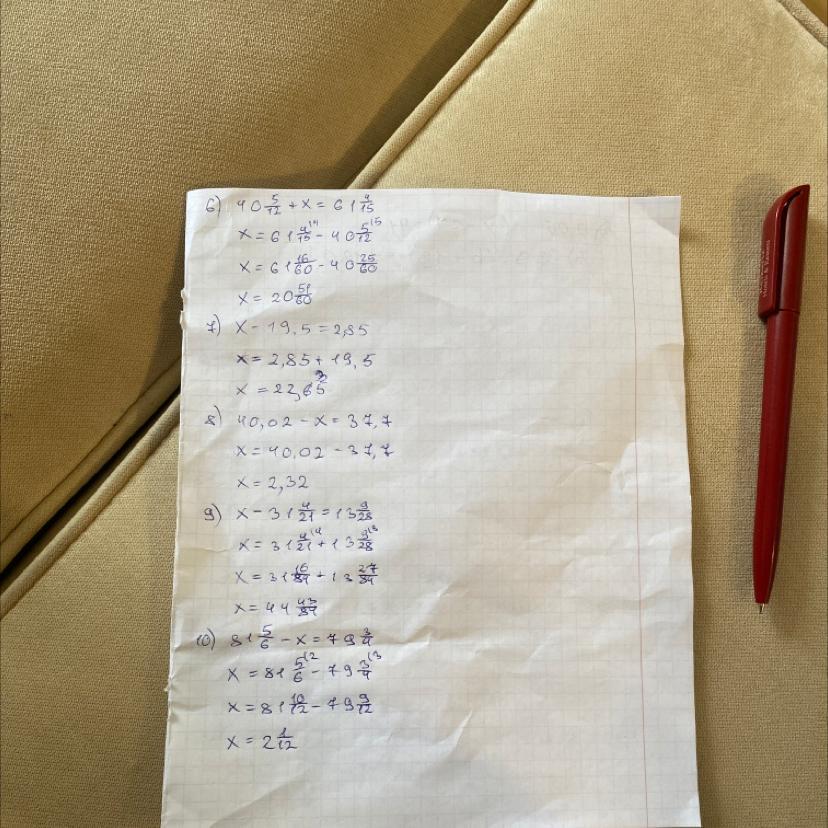 6) 40 5/12 + x = 61 4/15
x = 61 4/15 |4 - 40 5/12 |5
x = 61 16/60 - 40 25/60
x = 20 51/60
7) x - 19,5 = 2,85
x = 2,85 + 19,5
x = 22,35
8) 40,02 - x = 37,7
x = 40,02 - 37,7
x = 2,32
9) x - 31 4/21 = 13 9/28
x = 31 4/21 |4 + 13 9/28 |3
x = 31 16/84 + 13 27/84
x = 44 43/84
10) 81 5/6 - x = 79 3/4
x = 81 5/6 |2 - 79 3/4 |3
x = 81 10/12 - 79 9/12
x = 2 1/12